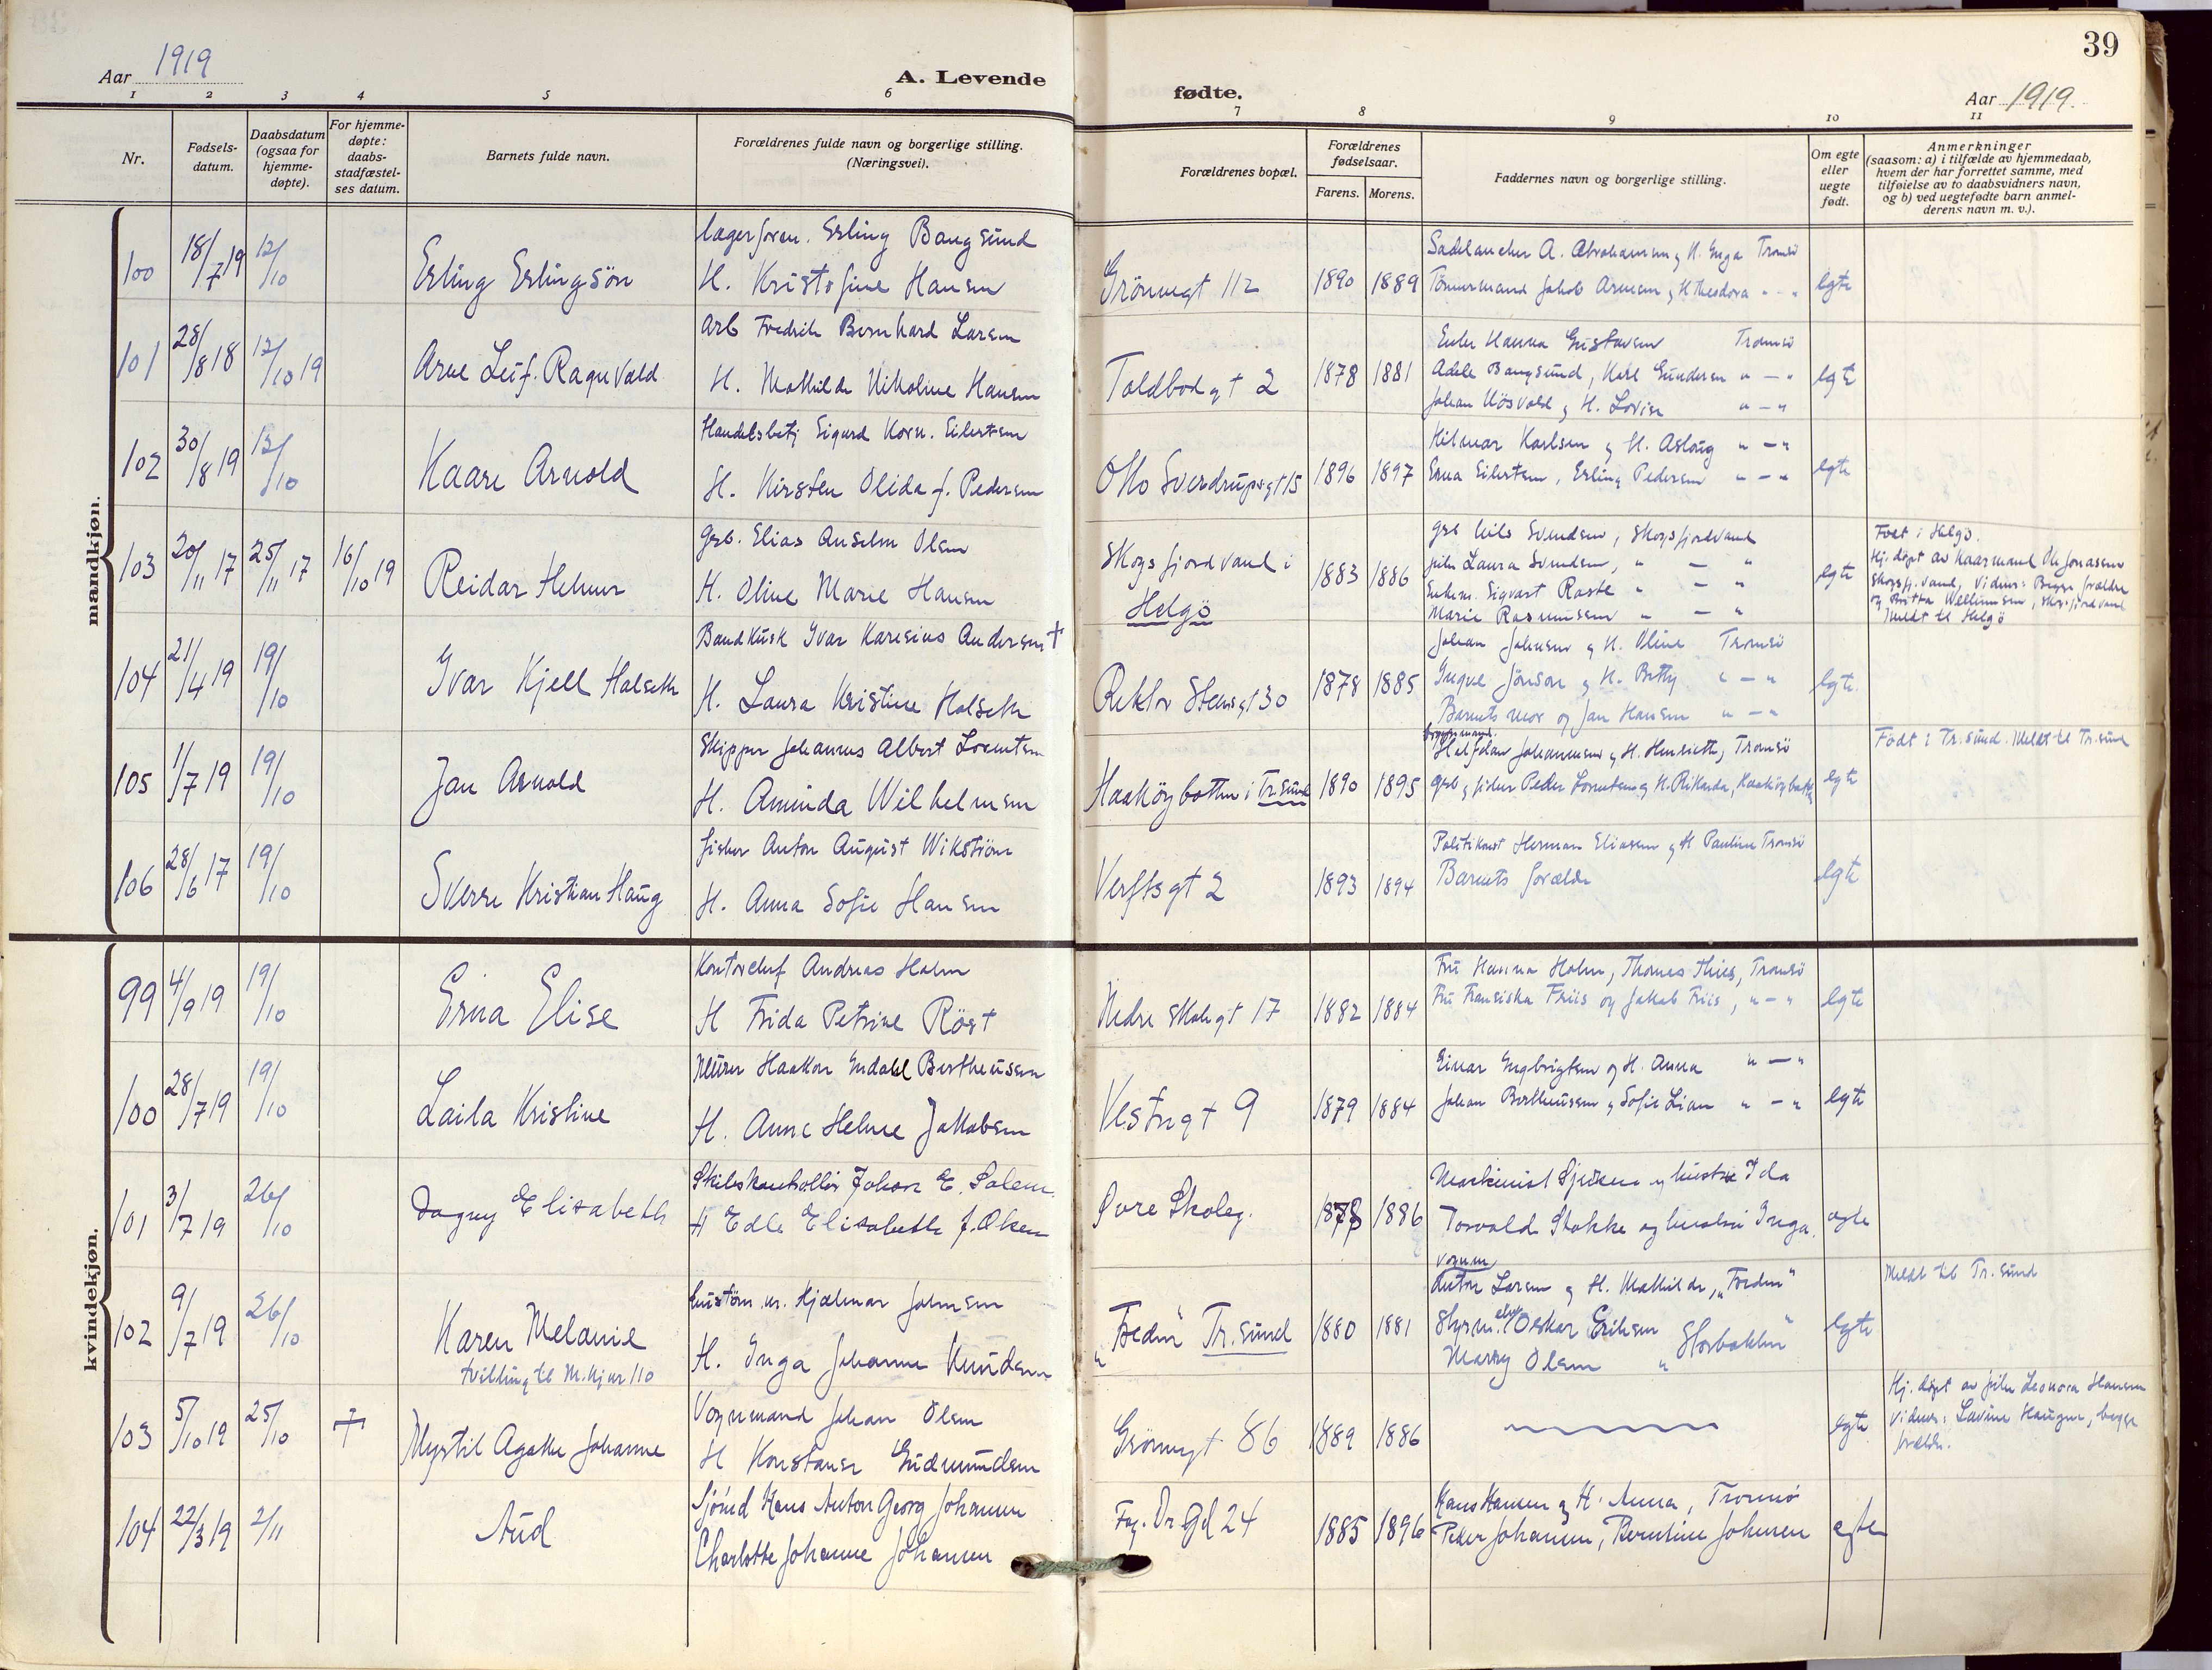 39
Aar 1919
A. Levende
fødte.
Aar 1919.
1 2 3 4 5 6 7 8 9 10 11
Nr.
Fødsels-
datum.
Daabsdatum
(ogsaa for
hjemme-
døpte).
For hjemme-
døpte:
daabs-
stadfæstel-
ses datum.
Barnets fulde navn.
Forældrenes fulde navn og borgerlige stilling.
(Næringsvei).
Forældrenes bopæl.
Forældrenes
fødselsaar.
Farens. Morens.
Faddernes navn og borgerlige stilling.
Om egte
eller
uegte
født.
Anmerkninger
(saasom: a) i tilfælde av hjemmedaab,
hvem der har forrettet samme, med
tilføielse av to daabsvidners navn,
og b) ved uegtefødte barn anmel-
derens navn m. v.).
mandkjøn.
100 18/7 19 12/10
Erling Erlingsön
lagerforv. Erling Bangsund
H. Kristofine Hansen
Grönnegt 112
1890 1889
A. Abrahamsen og H. Inga Tromsö
Tömmermand Jakob Arnesen og H. Theodora " - "
egte
101 28/8 18 12/10 19
Arne Leif. Ragnvald
Arb Fredrik Bernhard Larsen
H. Mathilde Nikoline Hansen
Toldbodgt 2
1878 1881
Enke Hanna Gustavsen Tromsö
Adele Bangsund, Karl Gundersen " - "
Johan Kösvold og H. Lovise " - "
egte
102 30/8 19 12/10
Kaare Arnold
Handelsbetj Sigurd Korn. Eilertsen
H. Kirsten Olida f. Pedersen
Otto Sverdrupsgt 15
1896 1897
Hilmar Karlsen og H. Aslaug " - "
Erna Eilertsen, Erling Pedersen " - "
egte
103 20/11 17 25/11 17 16/10 19
Reidar Helmer
Grb. Elias Anselm Olsen
H. Oline Marie Hansen
Skogsfjordvand i
Helgö
1883 1886
Grb Nils Svendsen, Skogsfjordvand
Laura Svendsen, " - "
Sigvart Raste " - "
Marie Rasmussen " - "
egte
Födt i Helgö.
Hj. döpt av Ole Jonassen
Skogsfj. vand, Vidner: Begge forældre
og Britta, Skogsfjordvand
Meldt til Helgö
104 21/4 19 19/10
Ivar Kjell Halseth
Baudkusk Ivar Karesius Andersen +
H. Laura Kristine Halseth
Rektor Stensgt 30
1878 1885
Johan Johansen og H. Oline Tromsö
Ingve Jönson og H. Betty " - "
Barnets mor og Jan Hansen " - "
egte.
105 1/7 19 19/10
Jan Arnold
Skipper Johannes Albert Lorentsen
H. Aminda Wilhelmsen
Haaköybotten i Tr.sund
1890 1895
Halfdan Johannessen og H. Henriette, Tromsö
Grb og fisker Peder Lorentsen og H. Rikarda, Haaköybotn
egte
Födt i Tr.sund. Meldt til Tr.sund
106 28/6 17 19/10
Sverre Kristian Haug
fisker Anton August Wikström
H. Anna Sofie Hansen
Verftsgt 2
1893 1894
Politikonst Herman Eliasen og H Pauline Tromsö
Barnets forældre
egte
kvindekjøn.
99 4/9 19 19/10
Erna Elise
Kontorchef Andreas Holm
H Frida Petrine Röst
Nedre Skolegt 17
1882 1884
Fru Hanna Holm, Thomas Thiis, Tromsö
Fru Fransiska Friis og Jakob Friis, " - "
egte
100 28/7 19 19/10
Laila Kristine
Murer Haakon Indahl Bertheussen
H. Anne Helene Jakobsen
Vestregt 9
1879 1884
Einar Engbrigtsen og H. Anna " - "
Johan Bertheussen og Sofie Lian " - "
egte
101 3/7 19 26/10
Dagny Elisabeth
Skibskontrollör Johan E. Salem.
H Edle Elisabeth f. Olsen
Øvre Skoleg.
1878 1886
Maskinist og hustru Ida
Torvald Stokke og hustru Inga.
egte
102 9/7 19 26/10
Karen Melanie
tvilling til M.kjön 110
Hjalmar Johnsen
H. Inga Johanne Knudsen
"Freden" Tr.sund
1880 1881
Anton Larsen og H. Mathilde, "Freden"
Styrm. Oskar Eriksen "Storbakken"
Marry Olsen "
egte
Meldt til Tr. sund
103 5/10 19 25/10 +
Myrtil Agathe Johanne
Vognmand Johan Olsen
H Konstanse Gudmundsen
Grönnegt 86
1889 1886
egte
Hj. döpt av Leonora Hansen
Vidner: Lavine Haugen, begge
forældre.
104 22/3 19 2/11
Aud
Sjömd Hans Anton Georg Johansen
Charlotte Johanne Johansen
24
1885 1896
Hans Hansen og H. Anna, Tromsö
Peder Johansen, Berntine Johnsen
egte